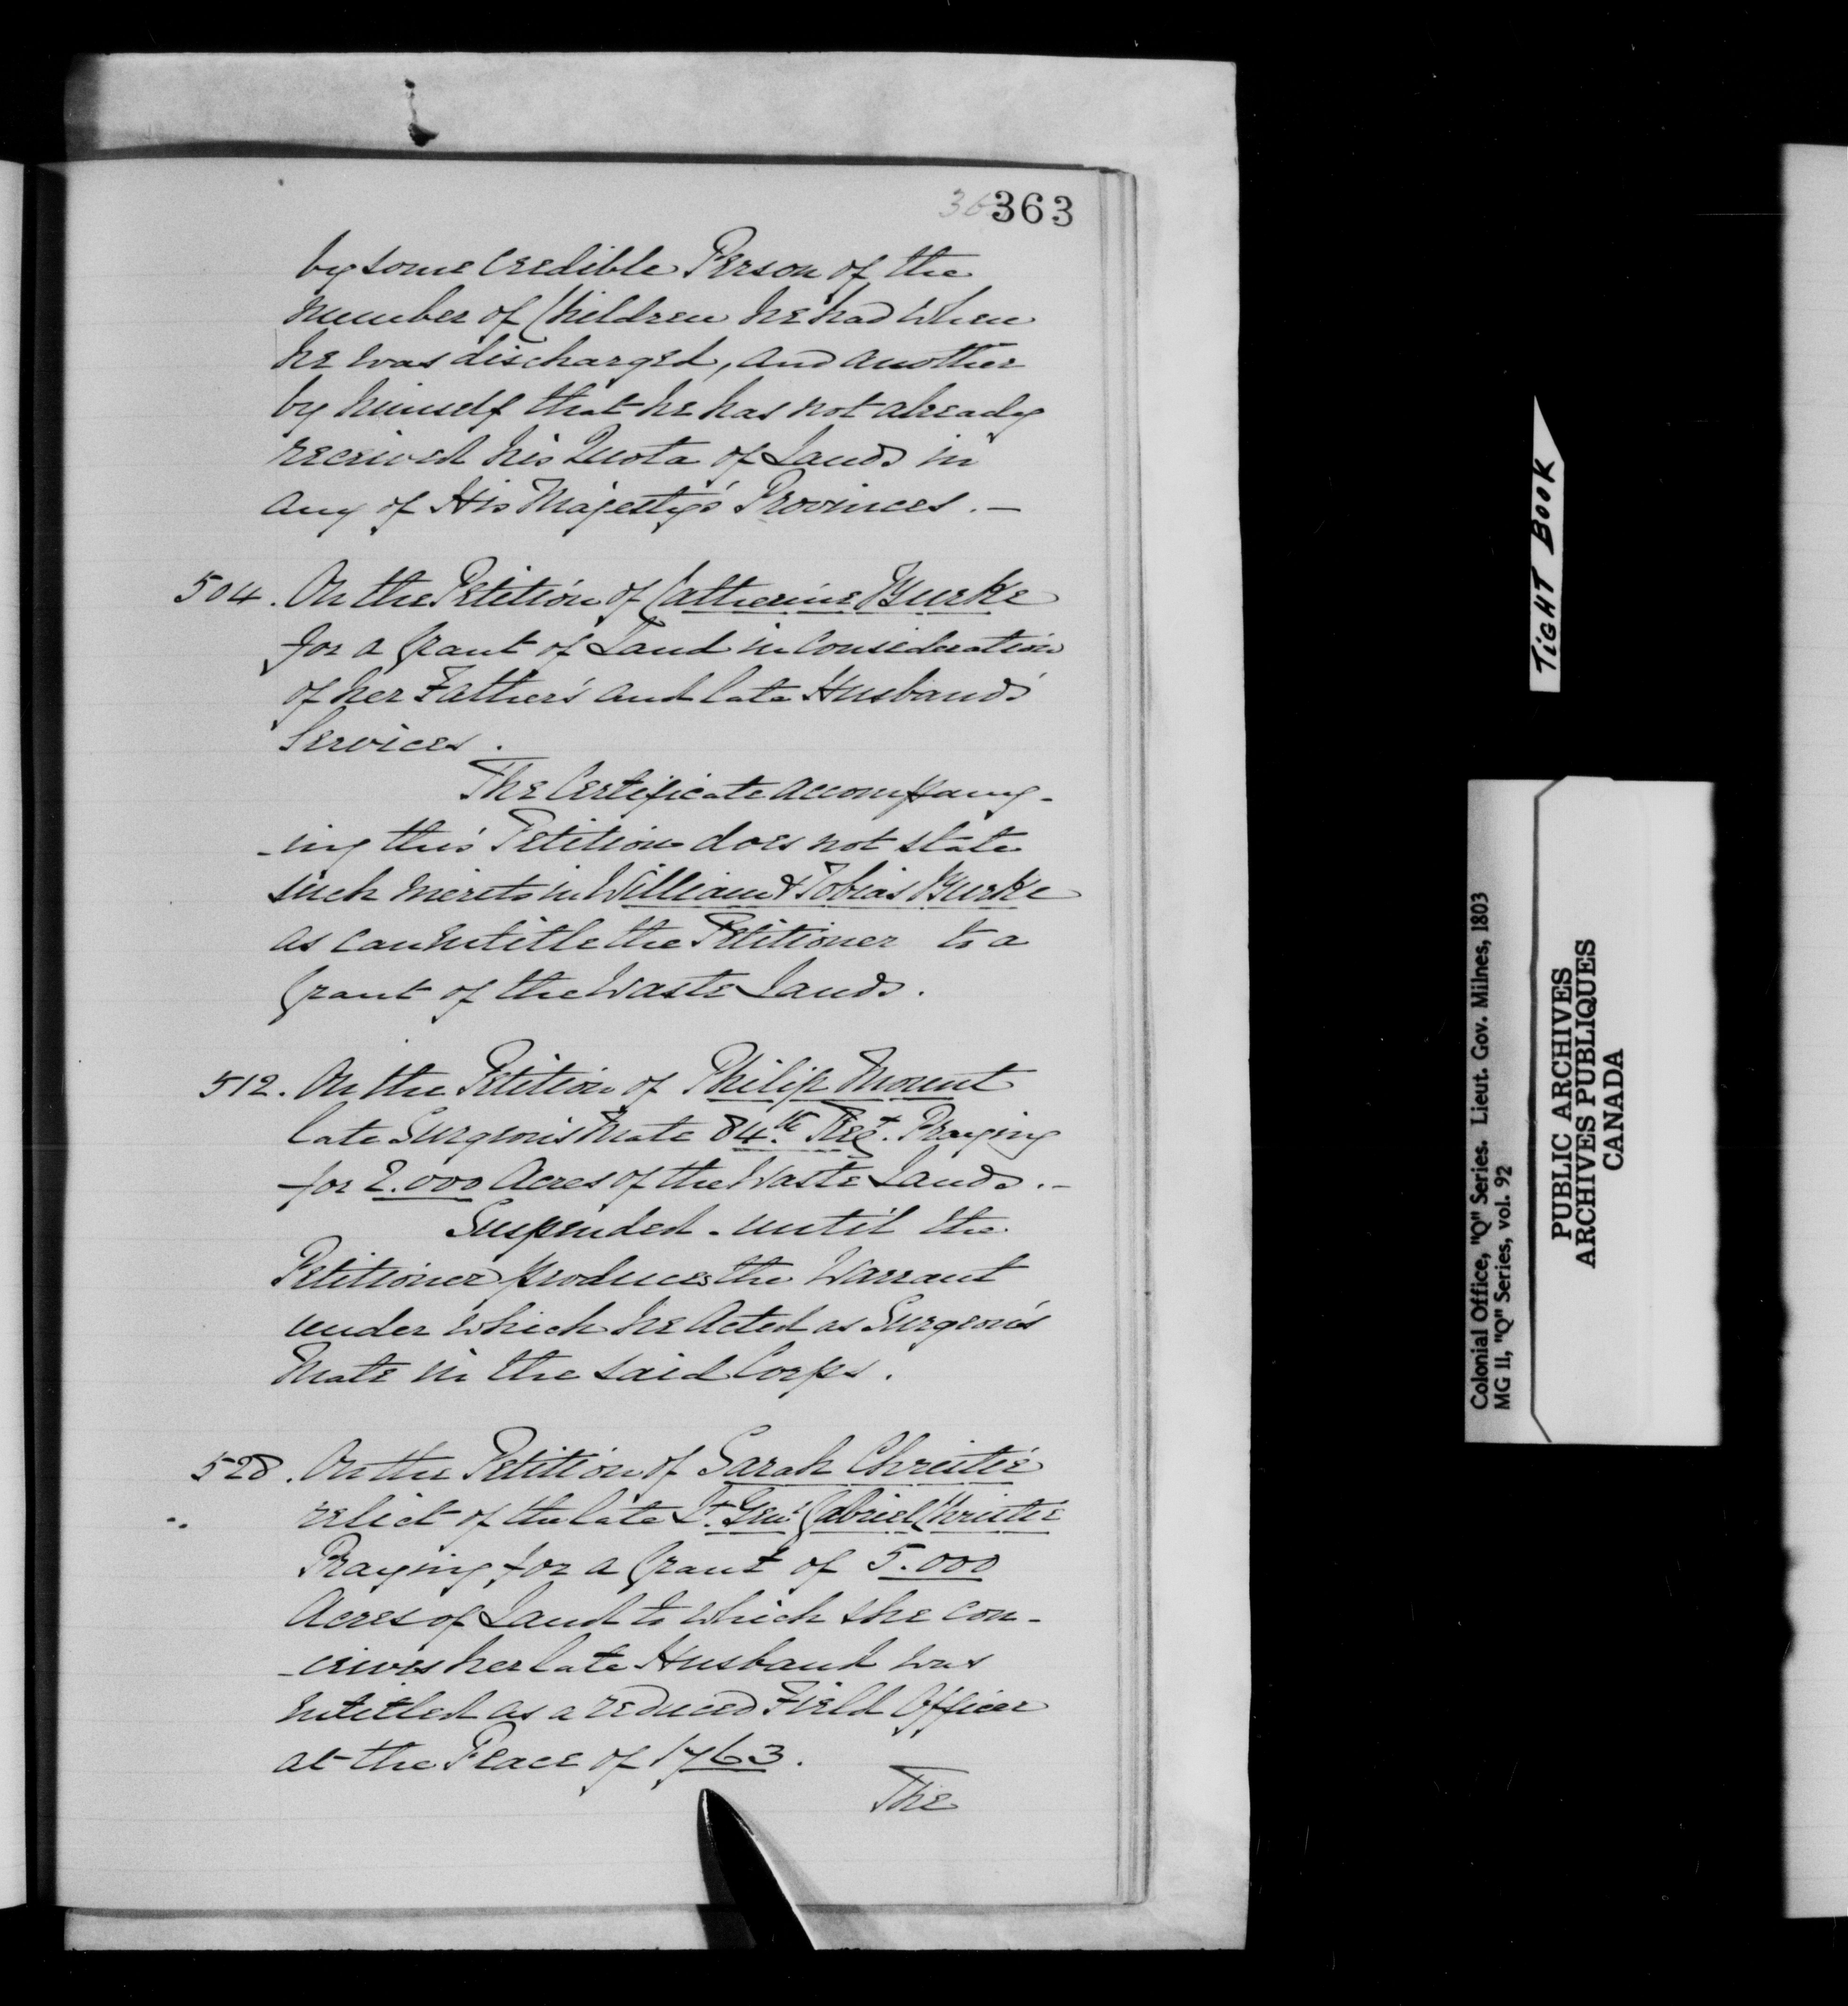 363
by some Credible Person of the
number of Children he had when
he was discharged, and another
by himself that he has not already
received his Quota of Lands in
any of His Majesty's Provinces. —
504. On the Petition of Catherine Burke
for a Grant of Land in Consideration
of her Father's and late Husband's
Services.
The Certificate accompany-
-ing this Petition does not state
such merits in William & Tobias Burke
as can entitle the Petitioner to a
Grant of the Waste Lands.
512. On the Petition of Philip Mount
late Surgeon's Mate 84th Regt. Praying
for 2.000 Acres of the Waste Lands. —
Suspended - until the
Petitioner produces the Warrant
under which he Acted as Surgeon's
Mate in the said Corps.
528. On the Petition of Sarah Christie
relict of the late Lt. Genl. Gabriel Christie
Praying for a Grant of 5.000
Acres of Land to which she con-
-ceives her late Husband was
entitled as a reduced Field Officer
at the Peace of 1763.
The
TIGHT BOOK
Colonial Office, "Q" Series. Lieut. Gov. Milnes, 1803
MG 11, "Q" Series, vol. 92
PUBLIC ARCHIVES
ARCHIVES PUBLIQUES
CANADA